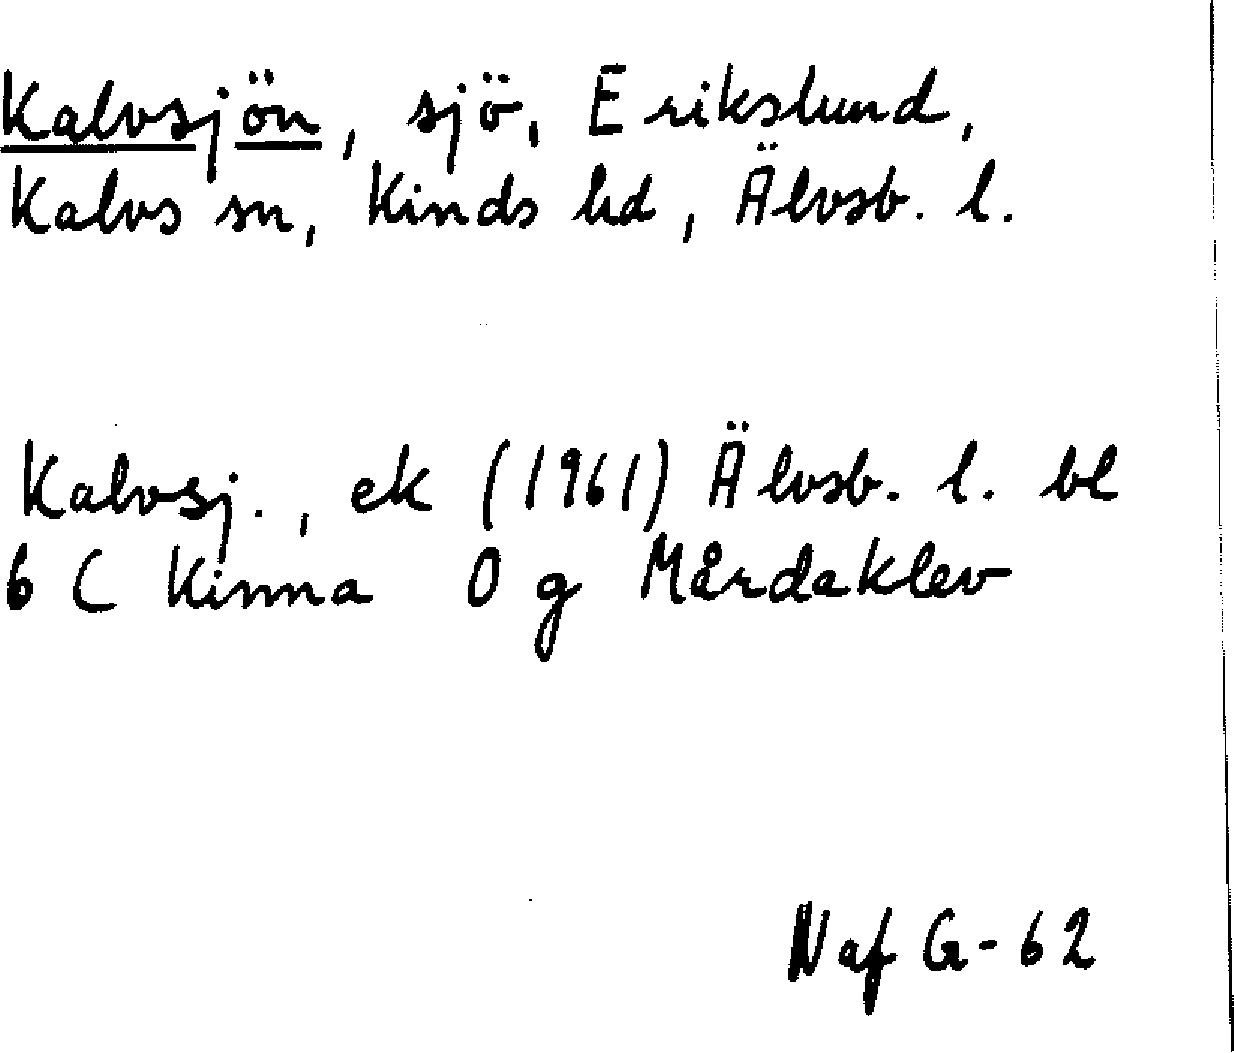 Kalvsjön, sjö, Erikslund,
Kalvs sn, Kinds hd, Älvsb. l.
Kalvsj., ek (1961) Älvsb. l. bl
6 C Kinna O g Mårdaklev
N af G-62